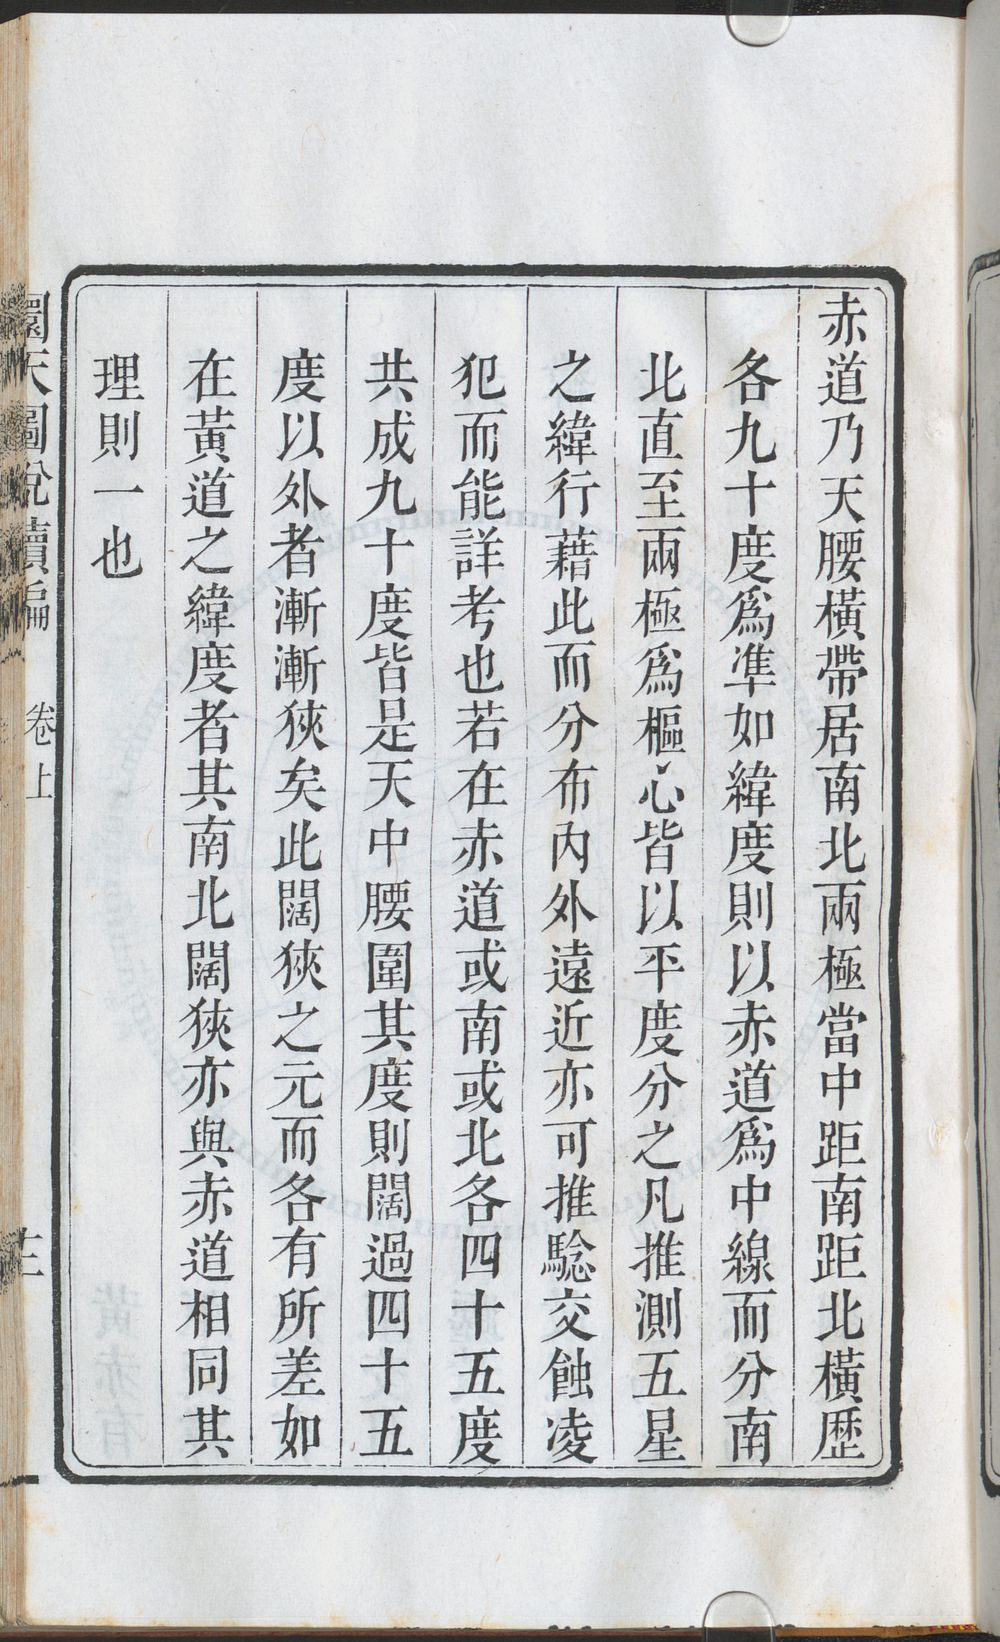 赤道乃天腰橫帶居南北兩極當中距南距北橫歷
各九十度爲準如緯度則以赤道爲中線而分南
北直至兩極爲樞心皆以平度分之凡推測五星
之緯行藉此而分布內外遠近亦可推驗交蝕凌
犯而能詳考也若在赤道或南或北各四十五度
共成九十度皆是天中腰圍其度則闊過四十五
度以外者漸漸狹矣此闊狹之元而各有所差如
在黃道之緯度者其南北闊狹亦與赤道相同其
理則一也
圜天圖說續編 卷上